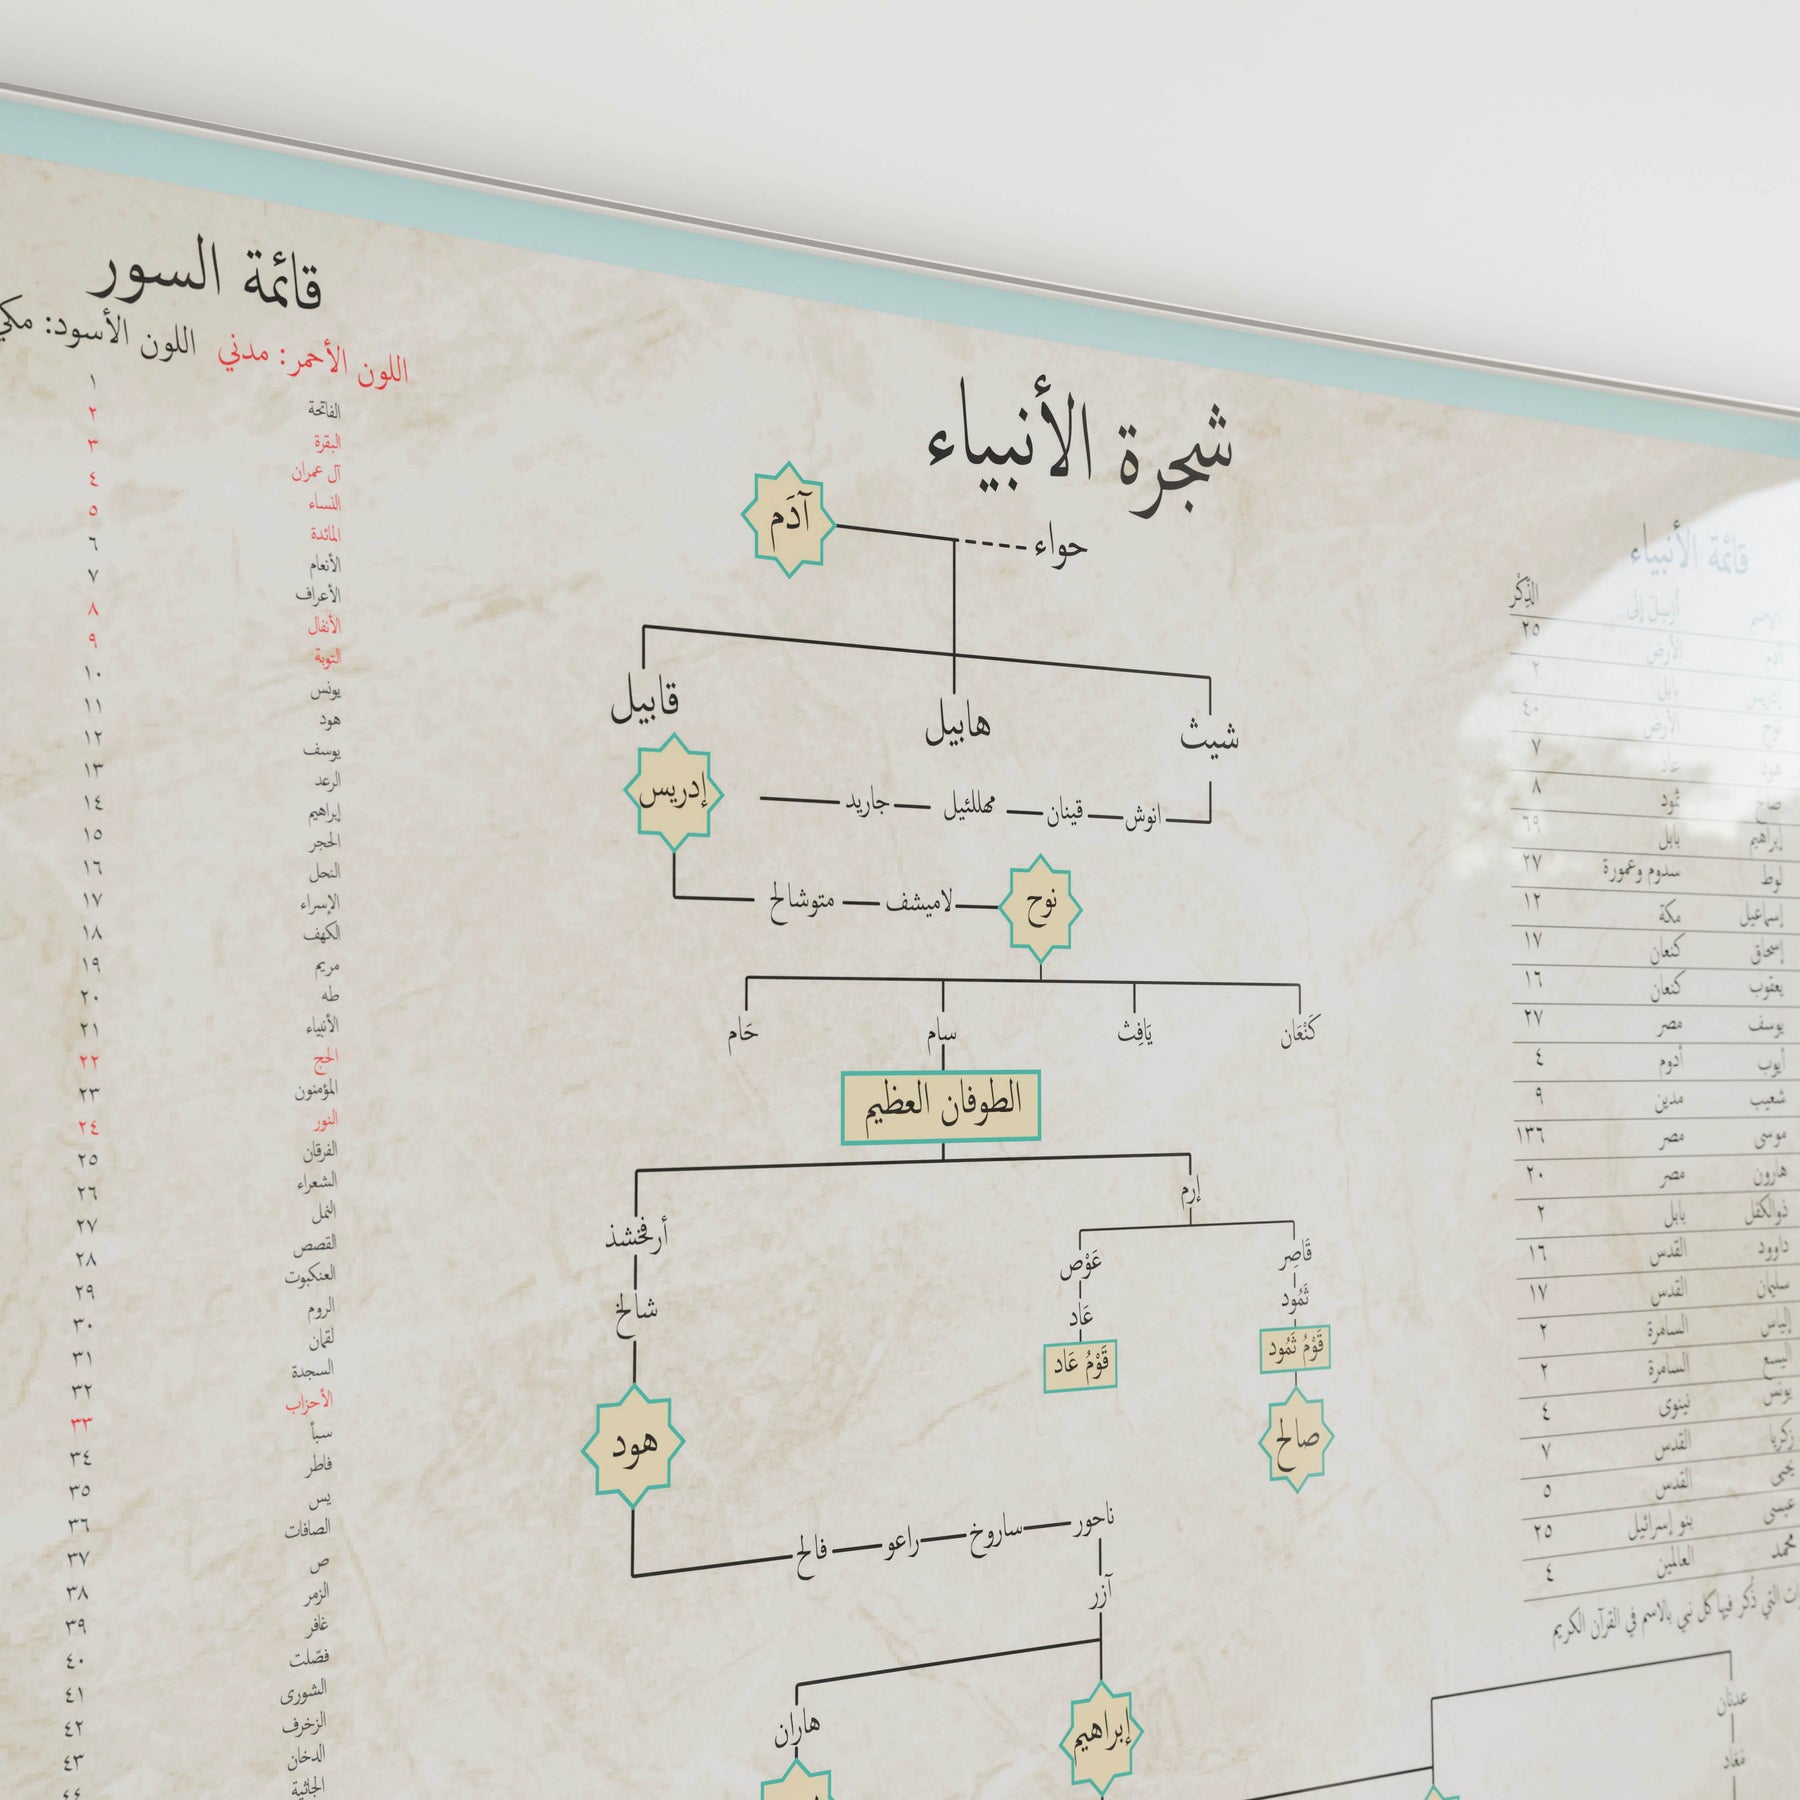 قائمة السور
اللون الأحمر: مدني اللون الأسود: مكي
الفاتحة ١
البقرة ٢
آل عمران ٣
النساء ٤
المائدة ٥
الأنعام ٦
الأعراف ٧
الأنفال ٨
التوبة ٩
يونس ١٠
هود ١١
يوسف ١٢
الرعد ١٣
إبراهيم ١٤
الحجر ١٥
النحل ١٦
الإسراء ١٧
الكهف ١٨
مريم ١٩
طه ٢٠
الأنبياء ٢١
الحج ٢٢
المؤمنون ٢٣
النور ٢٤
الفرقان ٢٥
الشعراء ٢٦
النمل ٢٧
القصص ٢٨
العنكبوت ٢٩
الروم ٣٠
لقمان ٣١
السجدة ٣٢
الأحزاب ٣٣
سبأ ٣٤
فاطر ٣٥
يس ٣٦
الصافات ٣٧
ص ٣٨
الزمر ٣٩
غافر ٤٠
فصّلت ٤١
الشورى ٤٢
الزخرف ٤٣
الدخان ٤٤
الجاثية
شجرة الأنبياء
آدَم
حواء
شيث هابيل قابيل
انوش قينان مهللئيل جاريد
إدريس
متوشالح لاميشف نوح
كَنْعَان يَافِث سام حَام
الطوفان العظيم
إرم
أرفخشذ
قَاصِر عَوْص
شالخ
ثَمُود عَاد
قَوْمُ ثَمُود قَوْمُ عَاد
صالح
هود
فالح راعو ساروخ ناحور
آزر
إبراهيم هاران
قائمة الأنبياء
الاسم أُرْسِلَ إلَى الذِّكْر
آدم الأرض ٢٥
إدريس بابل ٢
نوح الأرض ٤٠
هود عاد ٧
صالح ثمود ٨
إبراهيم بابل ٦٩
لوط سدوم وعمورة ٢٧
إسماعيل مكة ١٢
إسحاق كنعان ١٧
يعقوب كنعان ١٦
يوسف مصر ٢٧
أيوب أدوم ٤
شعيب مدين ٩
موسى مصر ١٣٦
هارون مصر ٢٠
ذوالكفل بابل ٢
داوود القدس ١٦
سليمان القدس ١٧
إلياس السامرة ٢
اليسع السامرة ٢
يونس نينوى ٤
زكريا القدس ٧
يحيى القدس ٥
عيسى بنو إسرائيل ٢٥
محمد العالمين ٤
التي ذُكر فيها كل نبي بالاسم في القرآن الكريم
عدنان
مَعَاد